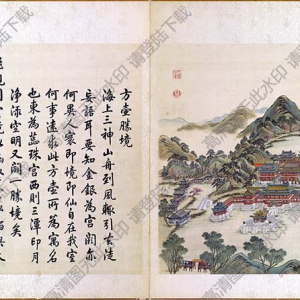 方壺勝境
海上三神山舟到風輒引去徒
妄語耳要知金銀為宮闕亦
何異人寰即境即仙自在我室
何事遠求此方壺所為寓名
也東為蕊珠宮西則三潭印月
淨淥空明又闢一勝境矣
高清图无此水印
请登陆下载